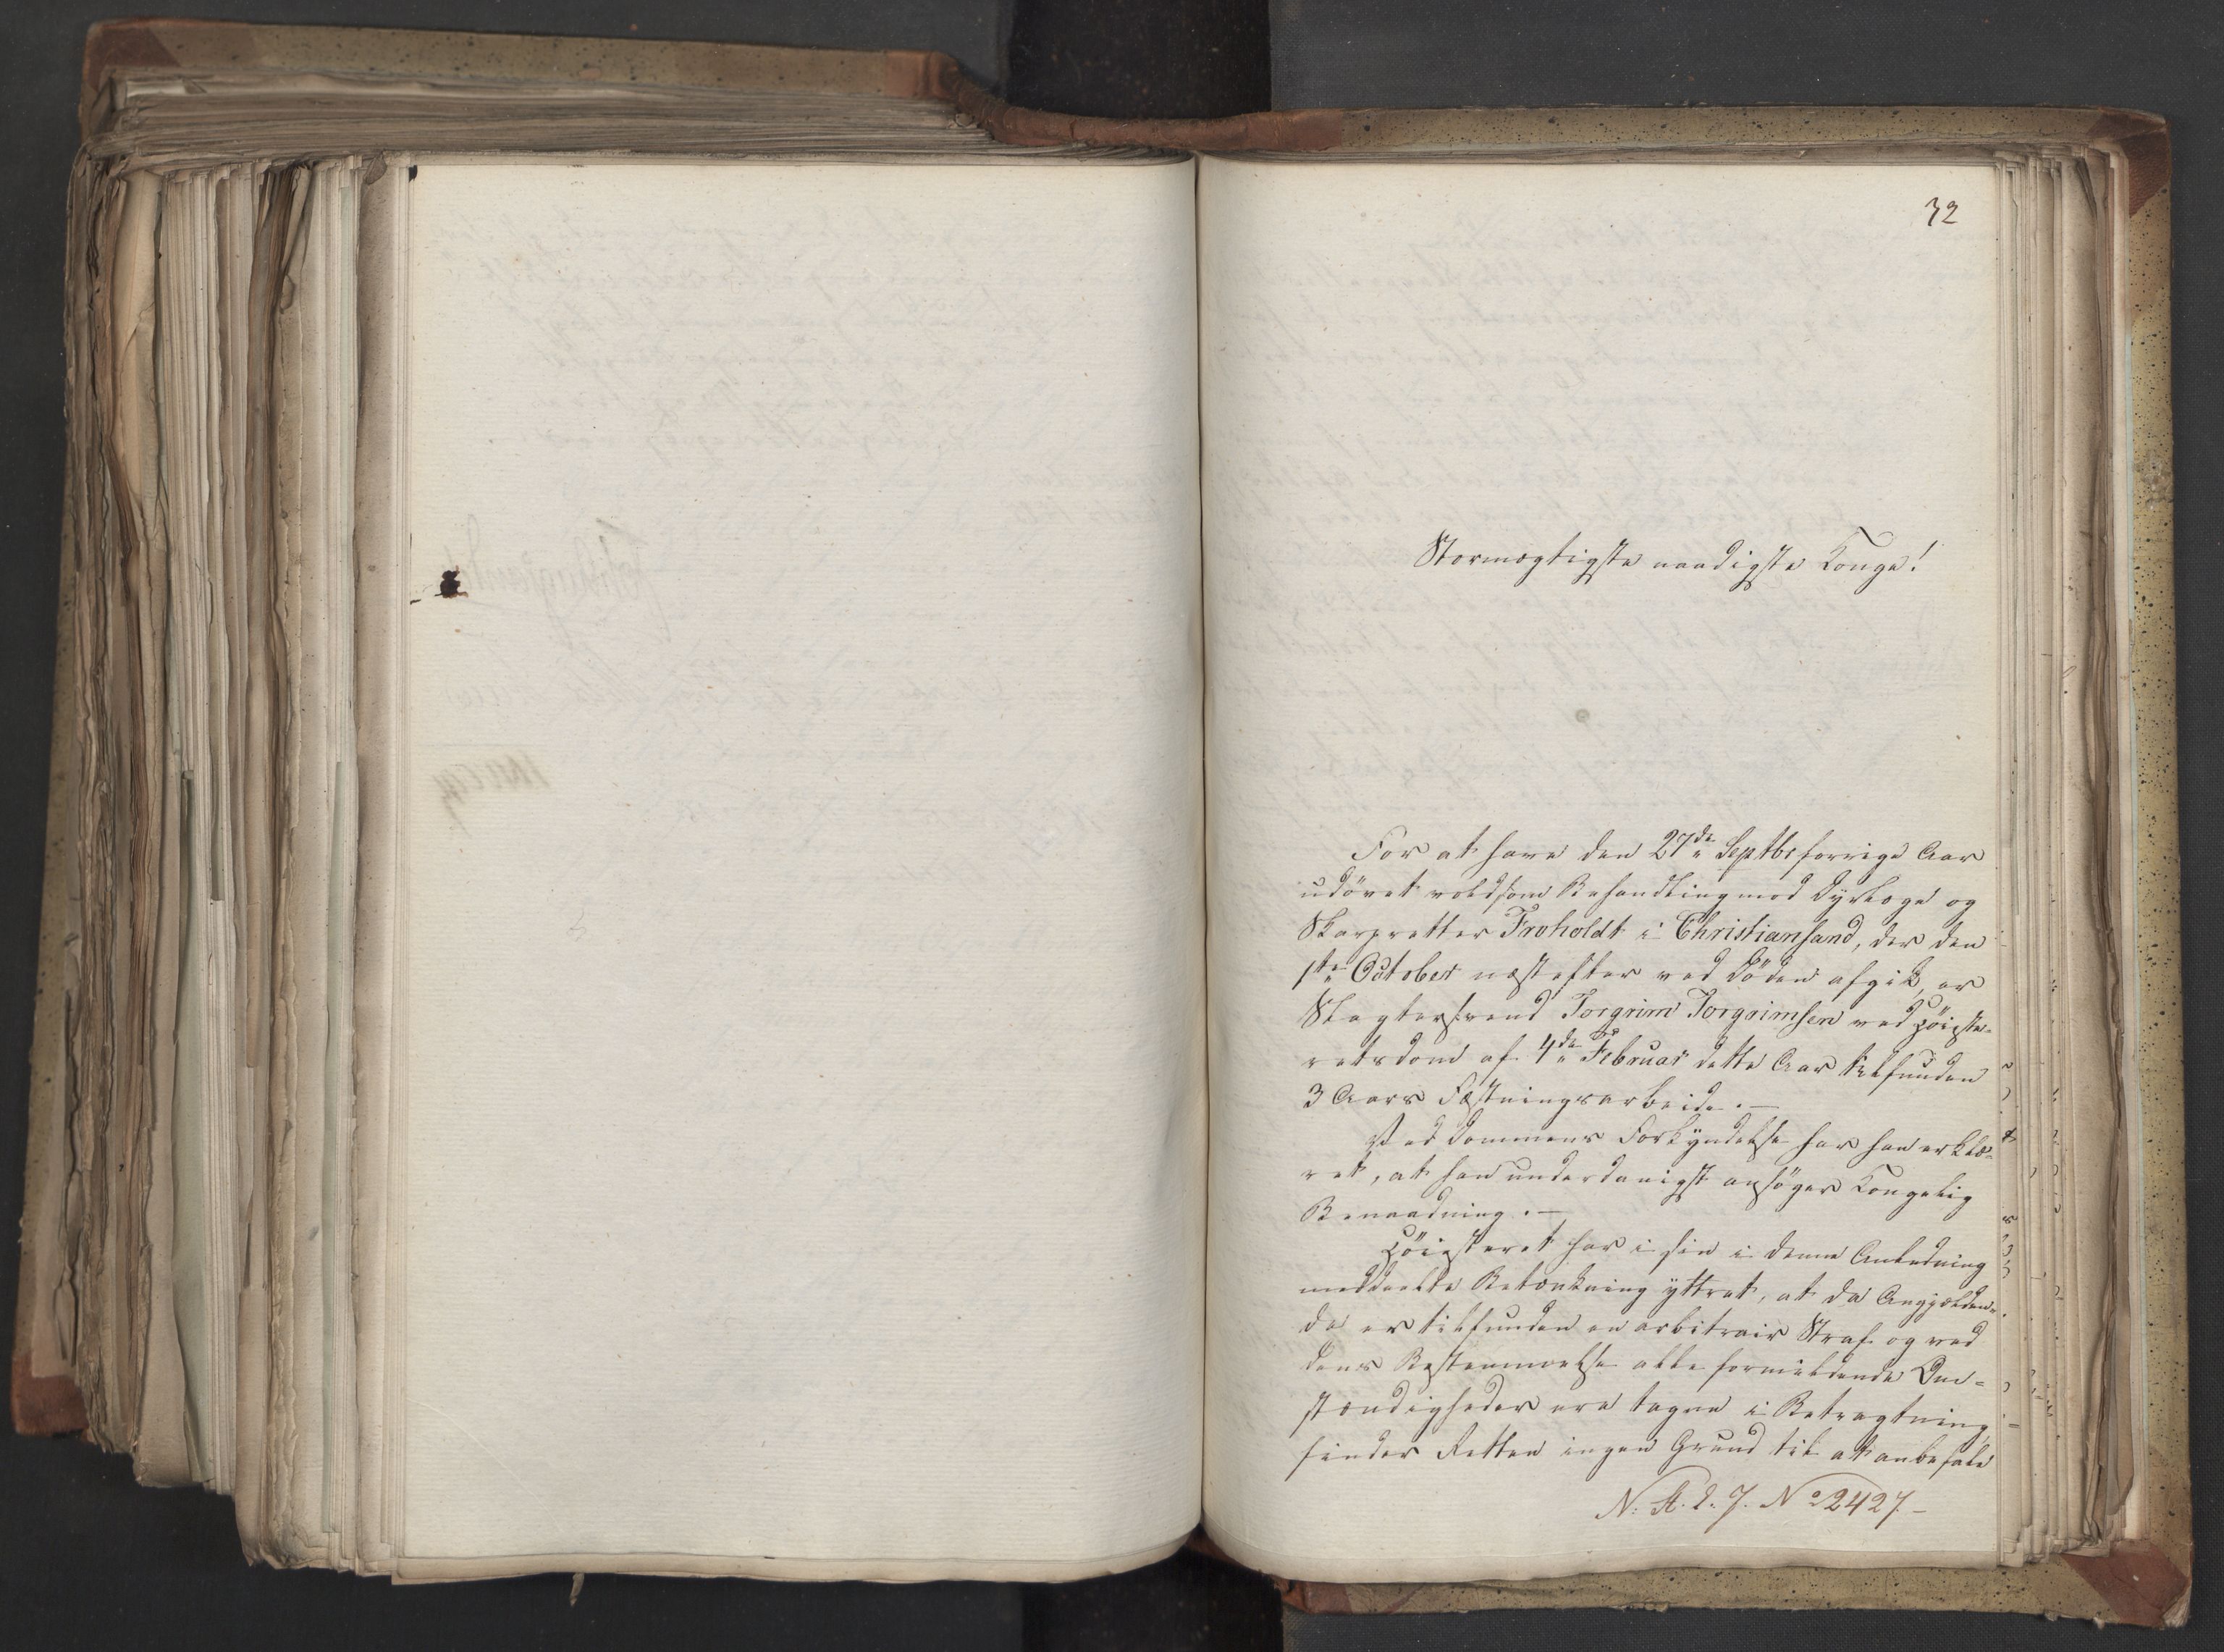 32
Stormægtigste naadigste Konge!
For at have den 27de Septbr forrige Aar
udövet voldsom Behandling mod Dyrlæge og
Skarpretter Froholdt i Christiansand, der den
1te October næstefter ved Döden afgik, er
Slagtersvend Torgrim Torgrimsen ved Höieste-
retsdom af 4de Februar dette Aar tilfunden
3 Aars Fæstningsarbeide. —
Ved Dommens Forkyndelse har han erklæ-
ret, at han underdanigst ansöger Kongelig
Benaadning. —
Höiesteret har i sin i denne Anledning
meddeelte Betænkning yttret, at da Angjælden-
de er tilfunden en arbitrair Straf og ved
dens Bestemmelse alle formildende Om-
stændigheder ere tagne i Betragtning,
finder Retten ingen Grund til at anbefale
N. A. L. J. No 2427. —